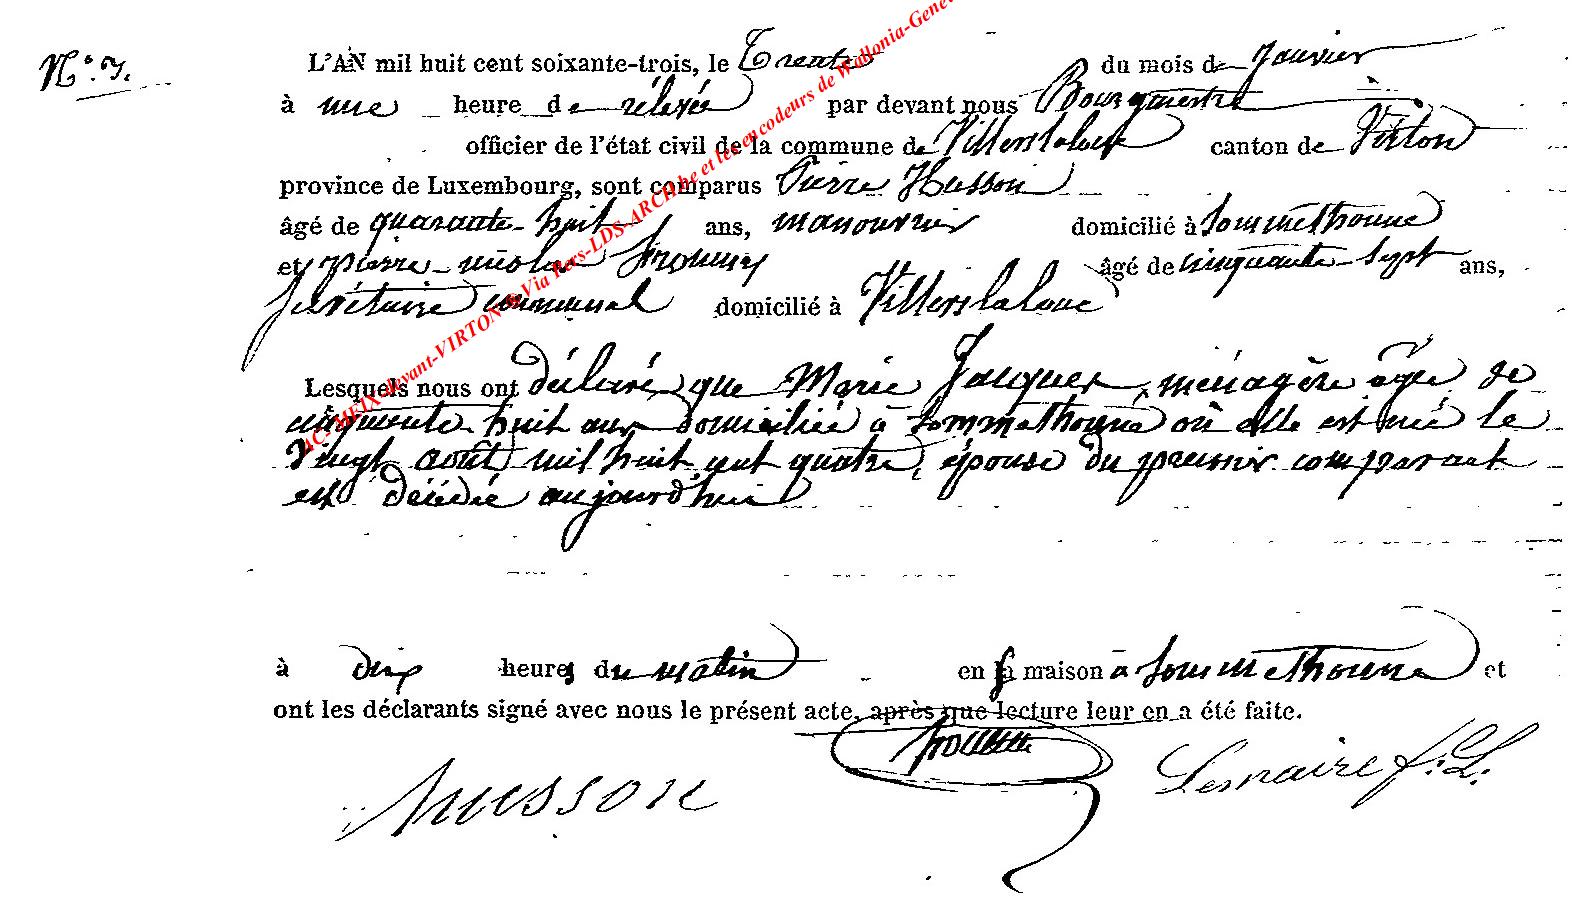 N.° 7.
L'AN mil huit cent soixante-trois, le Trente du mois de Janvier
à une heure de rélevée par devant nous Bourgmestre
officier de l'état civil de la commune de Villerslaloue canton de Virton
province de Luxembourg, sont comparus Pierre Husson
âgé de quarante-huit ans, manouvrier domicilié à Sommethonne
et Pierre-nicolas âgé de cinquante-sept ans,
Secrétaire communal domicilié à Villerslaloue
Lesquels nous ont déclaré que Marie Jacques, ménagère âgée de
cinquante-huit ans domiciliée à Sommethonne où elle est née le
Vingt août mil huit cent quatre, épouse du premier comparant
est décédée aujourd'hui
à dix heures du matin en sa maison à Sommethonne et
ont les déclarants signé avec nous le présent acte, après que lecture leur en a été faite.
Husson Lemaire f. L.
devant-VIRTON Via Pers-LDS-ARCH.be et les encodeurs de Wallonia-Gene